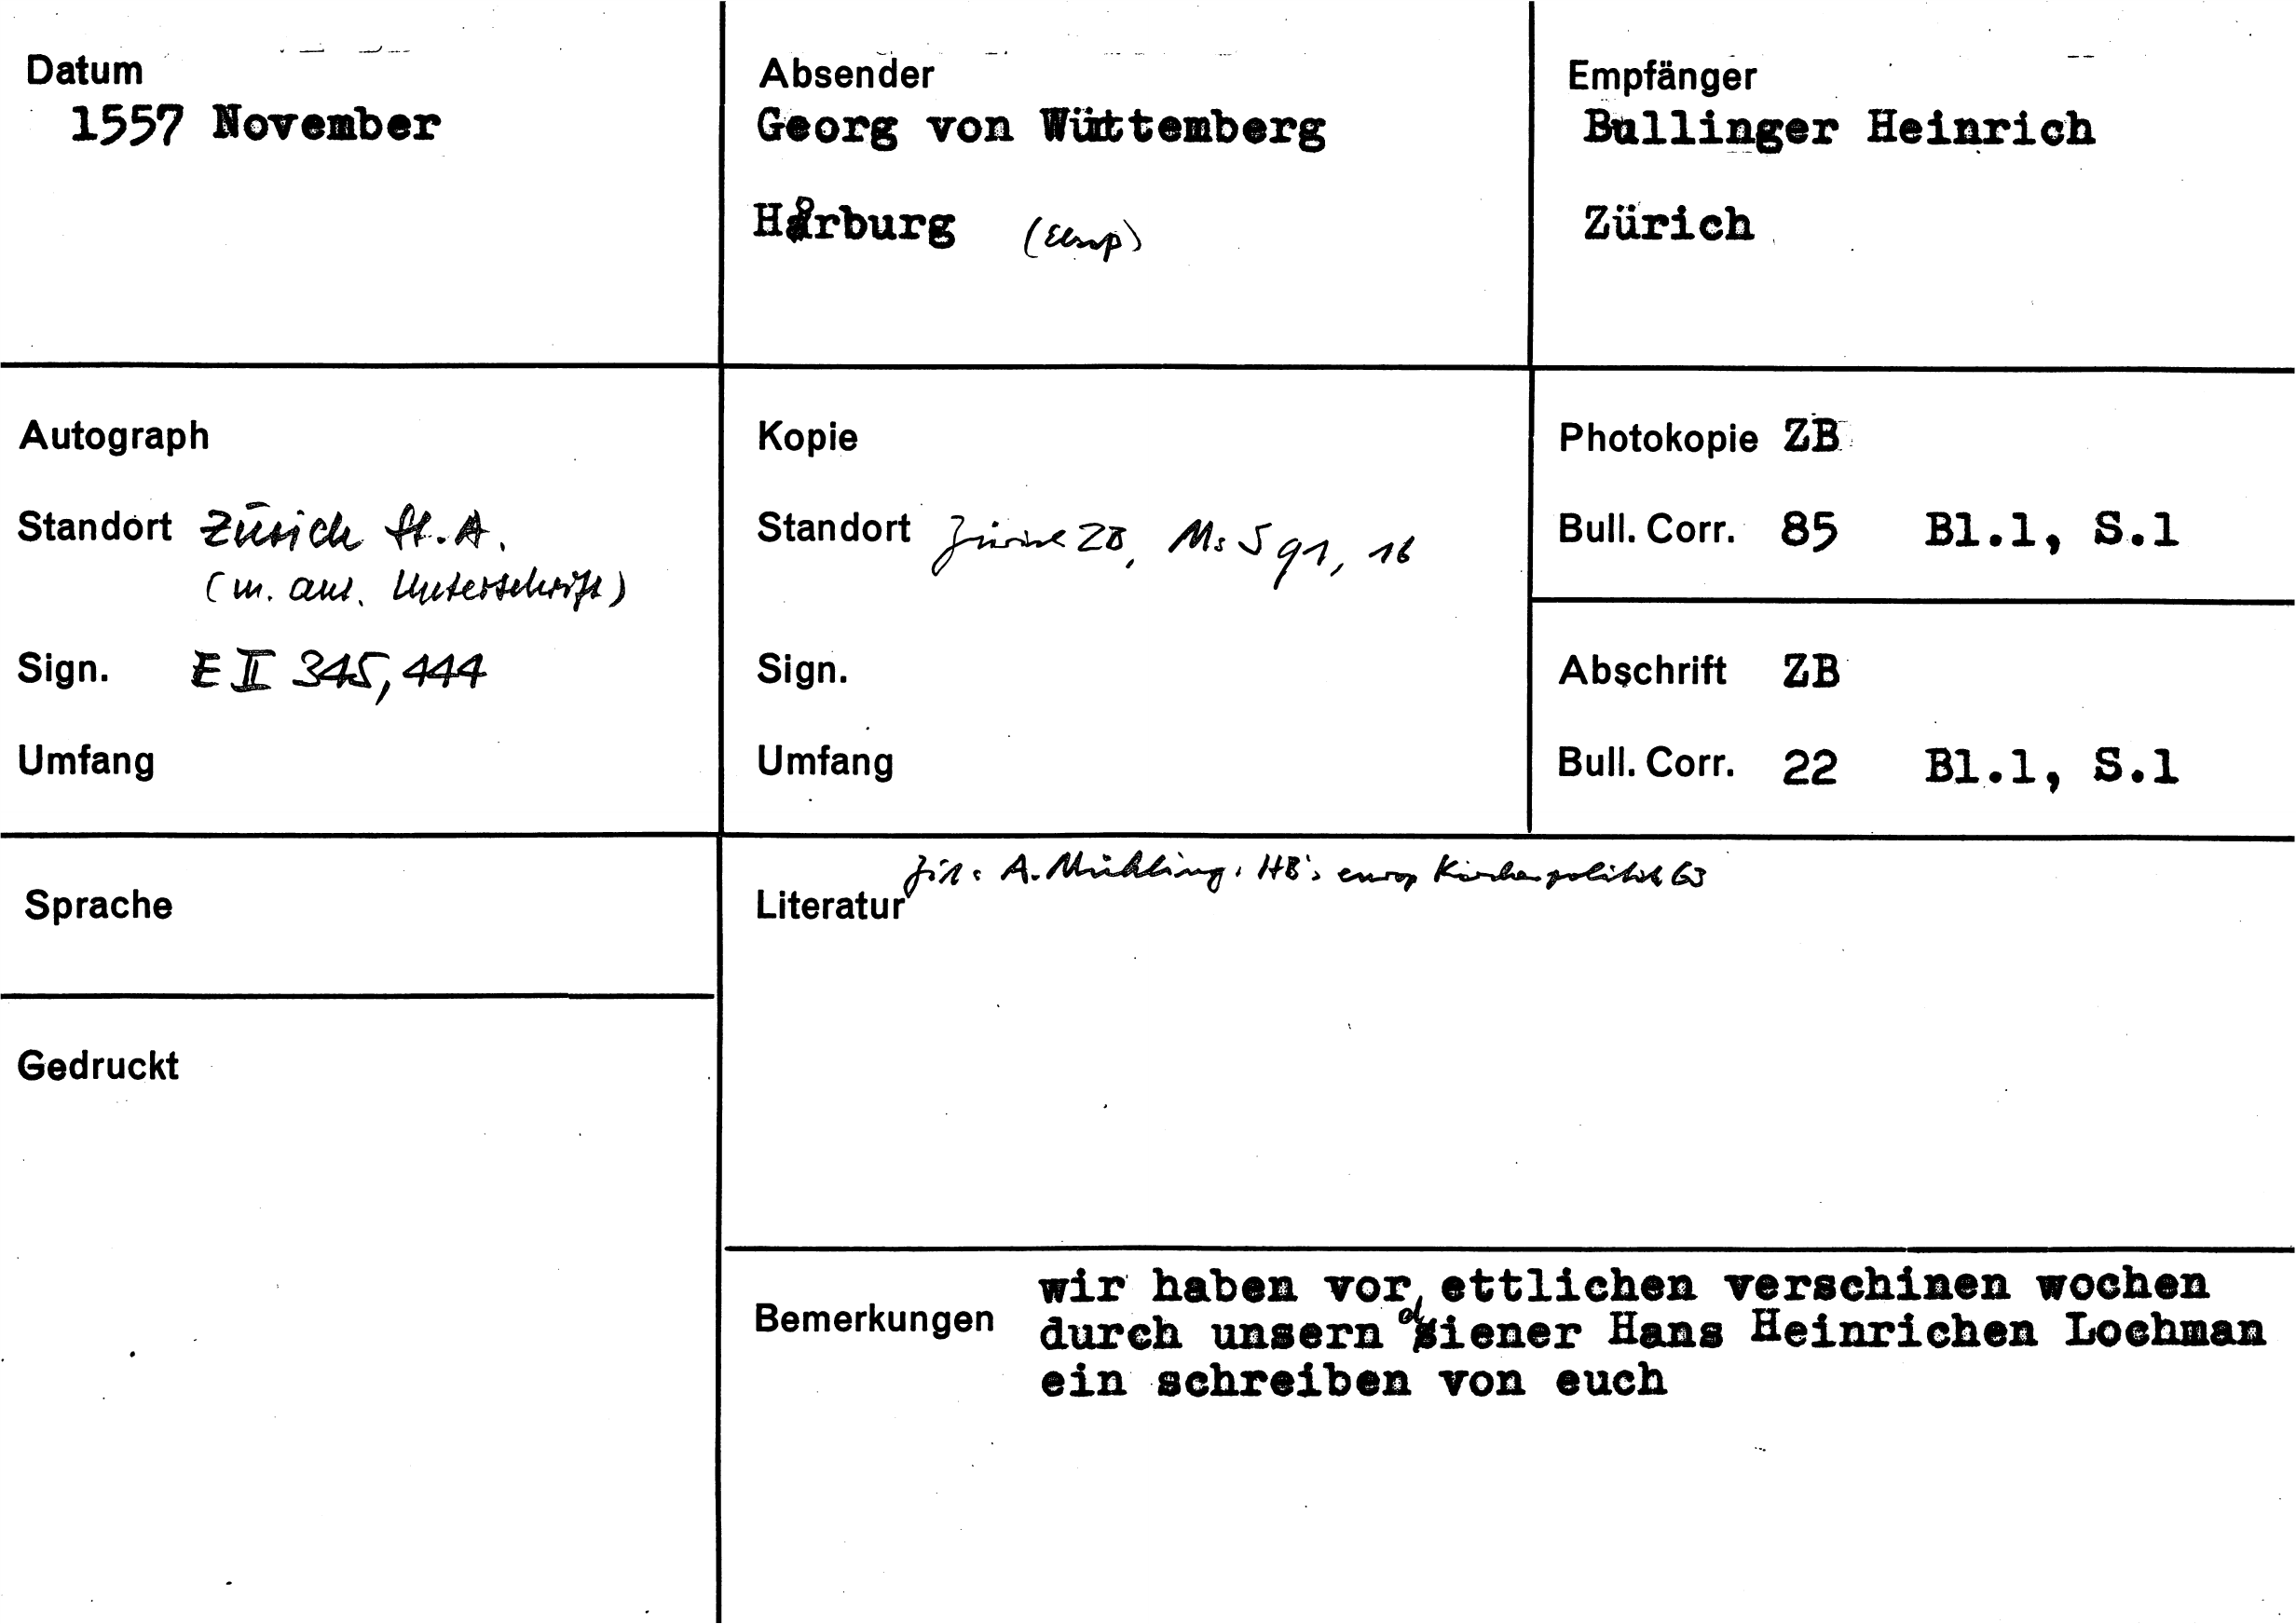 Datum
1557 November
Absender
Georg von Württemberg
Horburg (Elsaß)
Empfänger
Bullinger Heinrich
Zürich
Autograph
Standort Zürich St.A.
(m. aut. Unterschrift)
Sign. E II 345, 444
Umfang
Kopie
Standort Zürich ZB, Ms S 91, 16
Sign.
Umfang
Photokopie ZB
Bull. Corr. 85 Bl.1, S.1
Abschrift ZB
Bull. Corr. 22 Bl.1, S.1
Sprache
Gedruckt
Literatur
A. Mühling, HB's europ Kirchenpolitik 63
Bemerkungen
wir haben vor ettlichen verschinen wochen
durch unsern diener Hans Heinrichen Lochman
ein schreiben von euch